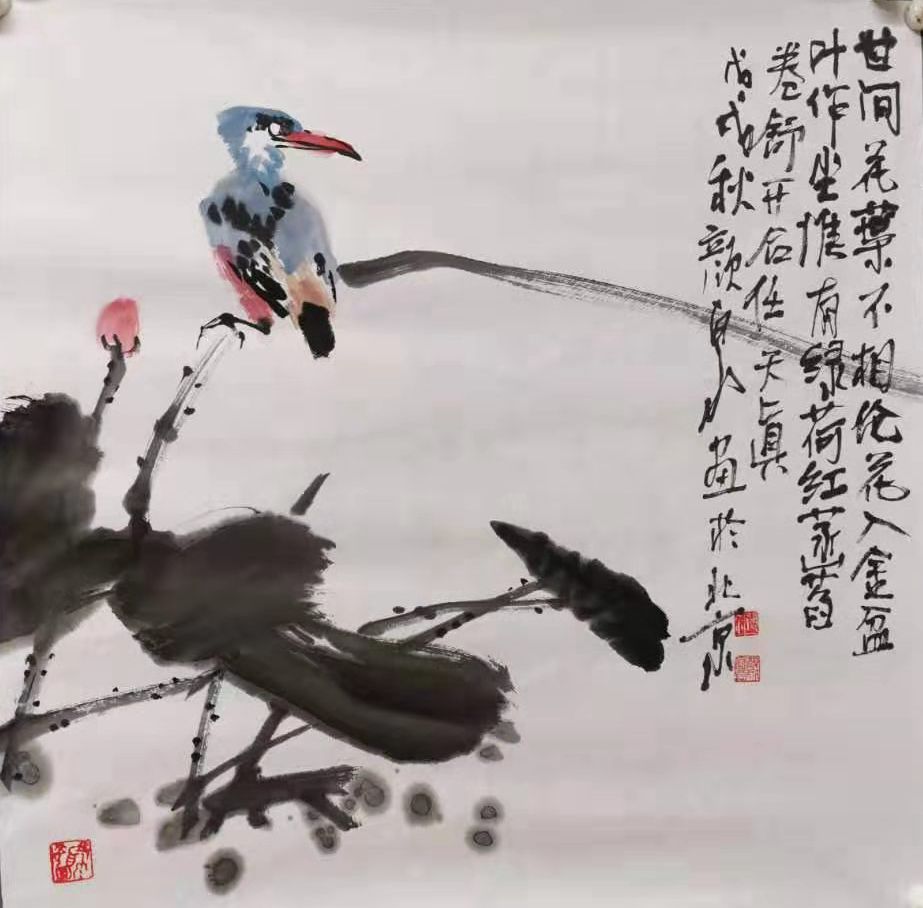 世间花葉不相伦花入金盆
叶作尘惟有绿荷红菡萏
卷舒开合任天真
戊戌秋颜画於北京